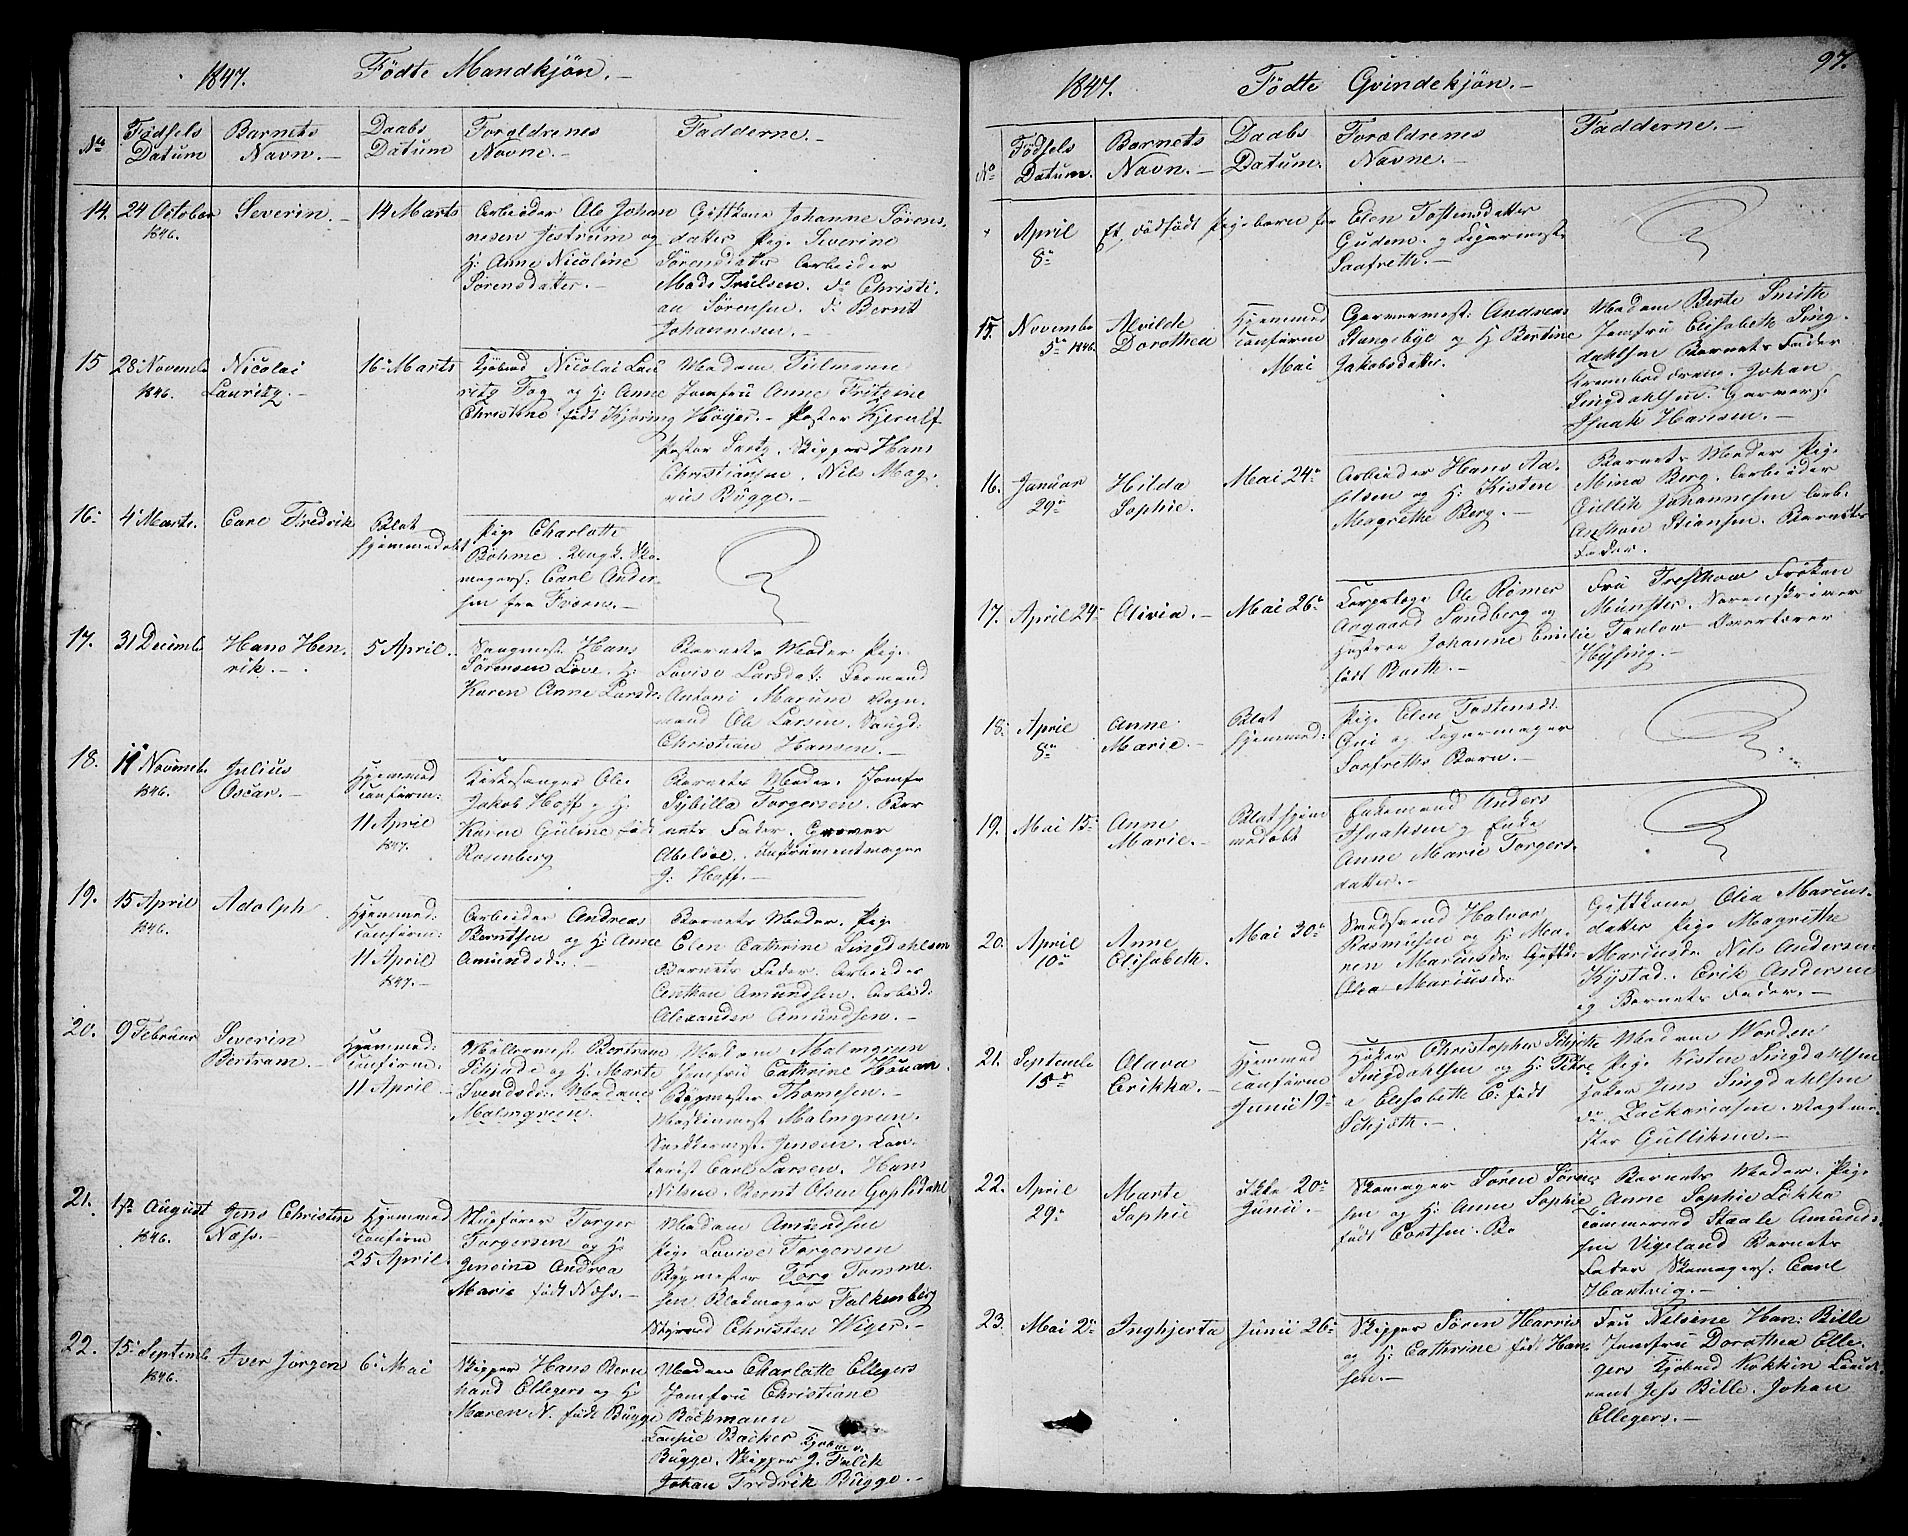 1847. Fødte Mandkjøn. –
No
Fødsels Datum
Barnets Navn. –
Daabs Datum
Forældrenes Navne. –
Fadderne. –
14. 24 October 1846.
Severin. –
14 Marts
Arbeider Ole Johan
nesen Jestrum og
H: Anne Nicoline
Sørensdatter. –
Giftkone Johanne Sørens
datter Pige Severine
Sørensdatter Arbeider
Mads Trulsen. do Christi
an Sørensen. d: Bernt
Johannesen. –
15 28 Novemb 1846.
Nicolai
Lauritz. –
16 Marts
Kjøbmd Nicolai Lau
ritz Fog og H: Anne
Christine født Kjøring
Madam Tilmann
Jomfru Anne Fritzine
Høyer. – Pastor Kjerulf
Pastor Lartz. Skipper Hans
Christiansen. Nils Mag
nus Bugge. –
16. 4 Marts.
Carl Fredrik
Blot
hjemmedøbt
Pige Charlotte
Böhme. Ungk. Sko
magers: Carl Ander
sen fra Fværn. –
17. 31 Decemb
Hans Hen
rik. –
5 April.
Saugmest. Hans
Sørensen Løve. H:
Karen Anne Larsdr
Barnets Moder Pige
Lovise Larsdat: Formand
Antoni Marum Vogn
mand Ole Larsen. Saugd
Christian Hansen. –
18. 11 Novemb 1846.
Julius
Oscar. –
Hjemmed
Confirm:
11 April
1847.
Kirkesanger Ole
Jakob Hoff og H:
Karen Guline født
Rosenberg
Barnets Moder. Jomfr
Sybilla Torgersen. Bar
nets Fader. Graver
Abelsöe. Instrumentmager
J: Hoff. –
19. 15 April 1846.
Adolph
Hjemmed:
Confirm:
11 April
1847. –
Arbeider Andreas
Berntsen og H: Anne
Amundsdr. –
Barnets Moder. Pige
Elen Cathrine Lingdahlsen
Barnets Fader. Arbeider
Anthon Amundsen. Arbeid:
Alexander Amundsen. –
20. 9 Februar
Severin
Bertram. –
Hjemmed:
Confirm:
11 April –
Møllermest. Bertram
Schjude og H: Marte
Svendsdr. Madame
Malmgreen.
Madam Malmgren
Jomfru Cathrine Houan
Bygmester Thomesen. –
Maskinmest Malmgren.
Snedkermest. Jensen. Con
torist Carl Larsen. Hans
Nilsen. Bernt Olsen Gopledahl
21. 17 August 1846.
Jens Christen
Næss. –
Hjemmed
Confirm
25 April.
Skipfører Torger
Torgersen og H:
Jensine Andrea
Marie født Næss. –
Madam Amundsen
Pige Lovise Torgersen
Bygmester Torg Tomme
sen. Blokmager Falkenberg
Styrmd Christen Wiger. –
22. 15 Septemb 1846.
Iver Jørgen
6 Mai
Skipper Hans Bern
hard Ellegers og H:
Maren N. født Bugge
Madam Charlotte Ellegers
Jomfru Christiane
Böckmann
Consul Backer Kjøbm
Bugge. Skipper J. Falck
Johan Fredrik Bugge. –
97.
1847. Fødte Qvindekjøn. –
No
Fødsels Datum.
Barnets Navn. –
Daabs Datum.
Forældrenes Navne. –
Fadderne. –
April 8
Et dødfødt Pigebarn for
Elen Tostensdatter
Gudem. og Ligermest.
Saafreth. –
15. Novemb 5 1846.
Alvilde
Dorothea
Hjemmed
Confirm
Mai
Garvermest: Andreas
Stangebye og H Bertine
Jakobsdatter.
Madam Berte Smith
Jomfru Elisabeth Ling
dahlsen Barnets Fader
Krambodsvend. Johan
Lingdahlsen. Garvers.
Isaak Hansen. –
16. Januar 29
Hilda
Sophie.
Mai 24
Arbeider Hans Aa
selsen og H: Kisten
Margrethe Berg. –
Barnets Moder Pige
Mina Berg. Arbeider
Gullik Johannesen Arb.
Anthon Stiansen. Barnets
Fader.
17. April 24
Olivia. –
Mai 26
Corpslæge Ole Rømer
Aagaard Sandberg og
Hustrue Johanne Emilie
født Barth. –
Fru Treschow Frøken
Münster. Sorenskriver
Taulow Overtoller
Hysing. –
18. April 8
Anne
Marie. –
Blot
hjemmed:
Pige Elen Tostensd:
Qui og Ligermager
Sorfreths Barn. –
19. Mai 15
Anne
Marie. –
Blot hjem
medøbt
Enkemand Anders
Isaaksen og Enke
Anne Marie Torgers
datter. –
20. April 10
Anne
Elisabeth.
Mai 30
Smedsvend Halvor
Rasmusen og H: Ma
ren Mariusdr Giftk:
Olea Mariusdr
Giftkone Olea Marius
datter Pige Magrethe
Mariusdr Nils Andersen
Kystad. Erik Andersen
og Barnets Fader. –
21. Septemb 15
Olava
Erikka.
Hjemmed
Confirm
Junii 19
Høker Christopher Schjøtt
Lingdahlsen og H: Petre
a Elisabeth C: født
Schjøth. –
Madam Worden
Pige Kisten Lingdahlsen
Høker Jens Lingdahlsen
do Zackariasen. Vagtme
ster Gulliksen. –
22. April 29
Marte
Sophie
20
Junii. –
Skomager Søren Søren
sen og H: Anne Sophie
født Cortsen. Bo
Barnets Moder. Pige
Anne Sophie Løkka
Tømmermd Staale Amund
sen Vigeland Barnets
Fader Skomagers: Carl
Hartvig. –
23. Mai 2
Inghjerta
Junii 26
Skipper Søren Harris
og H: Cathrine født Han
sen. –
Fru Nilsine Han: Bille
Jomfru Dorothea Elle
gers Kjøbmd Nokkin Lieut
nant Jess Bille. Johan
Ellegers. –